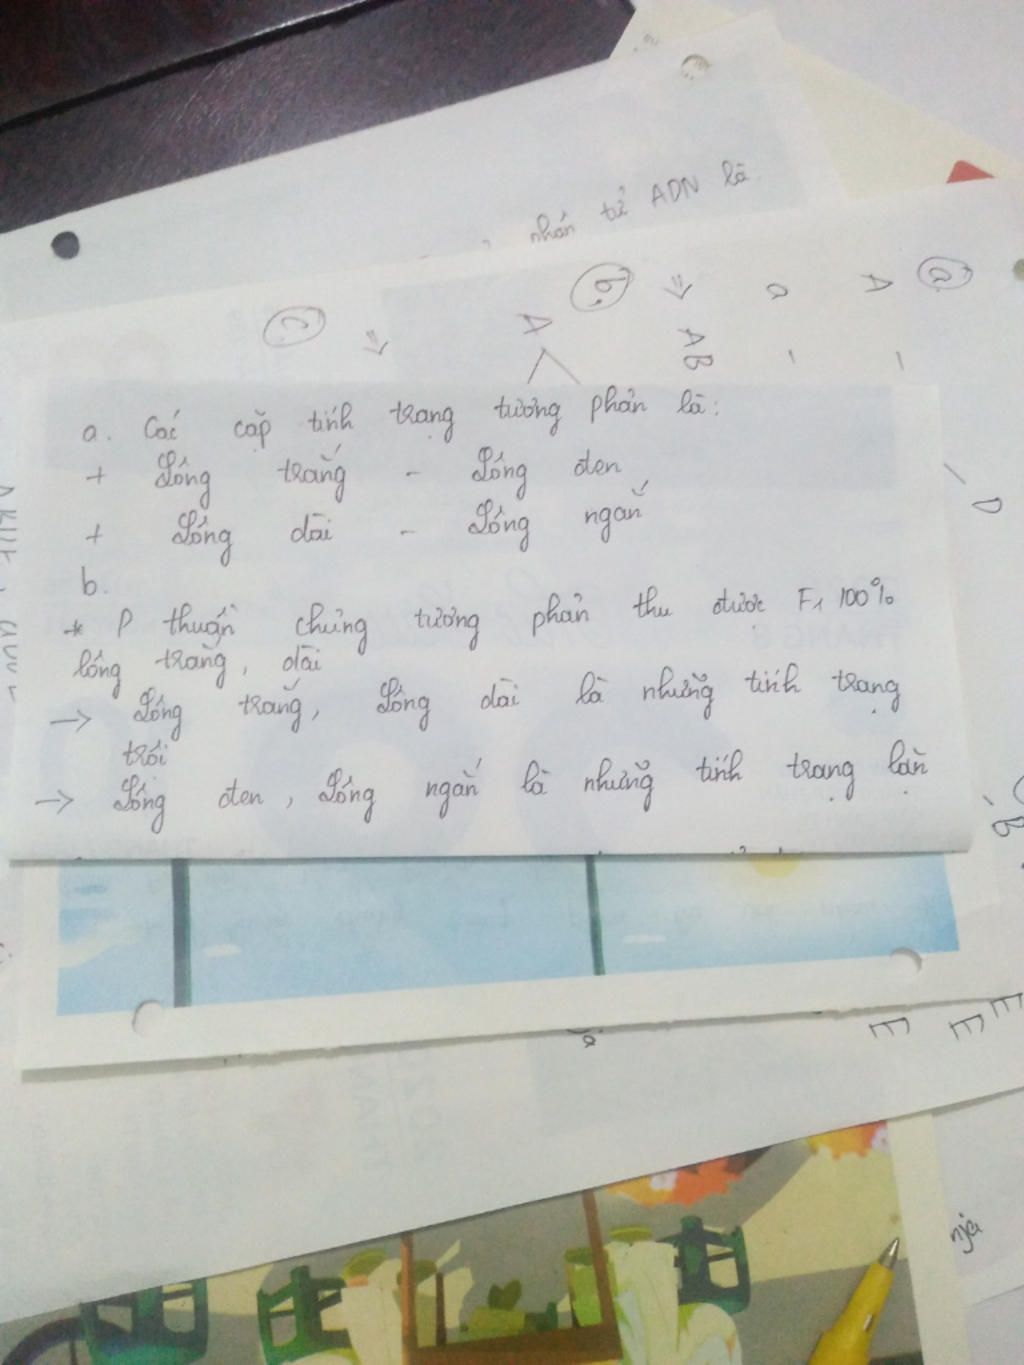 nhân tử ADN là
a
A
a
b.
AB
A
c.
D
a. Các cặp tính trạng tương phản là:
+ Lông trắng - Lông đen
+ Lông dài - Lông ngắn
b.
* P thuần chủng tương phản thu được F1 100%
lông trắng, dài
→ Lông trắng, Lông dài là những tính trạng
trội
→ Lông đen, Lông ngắn là những tính trạng lặn
B
E E E